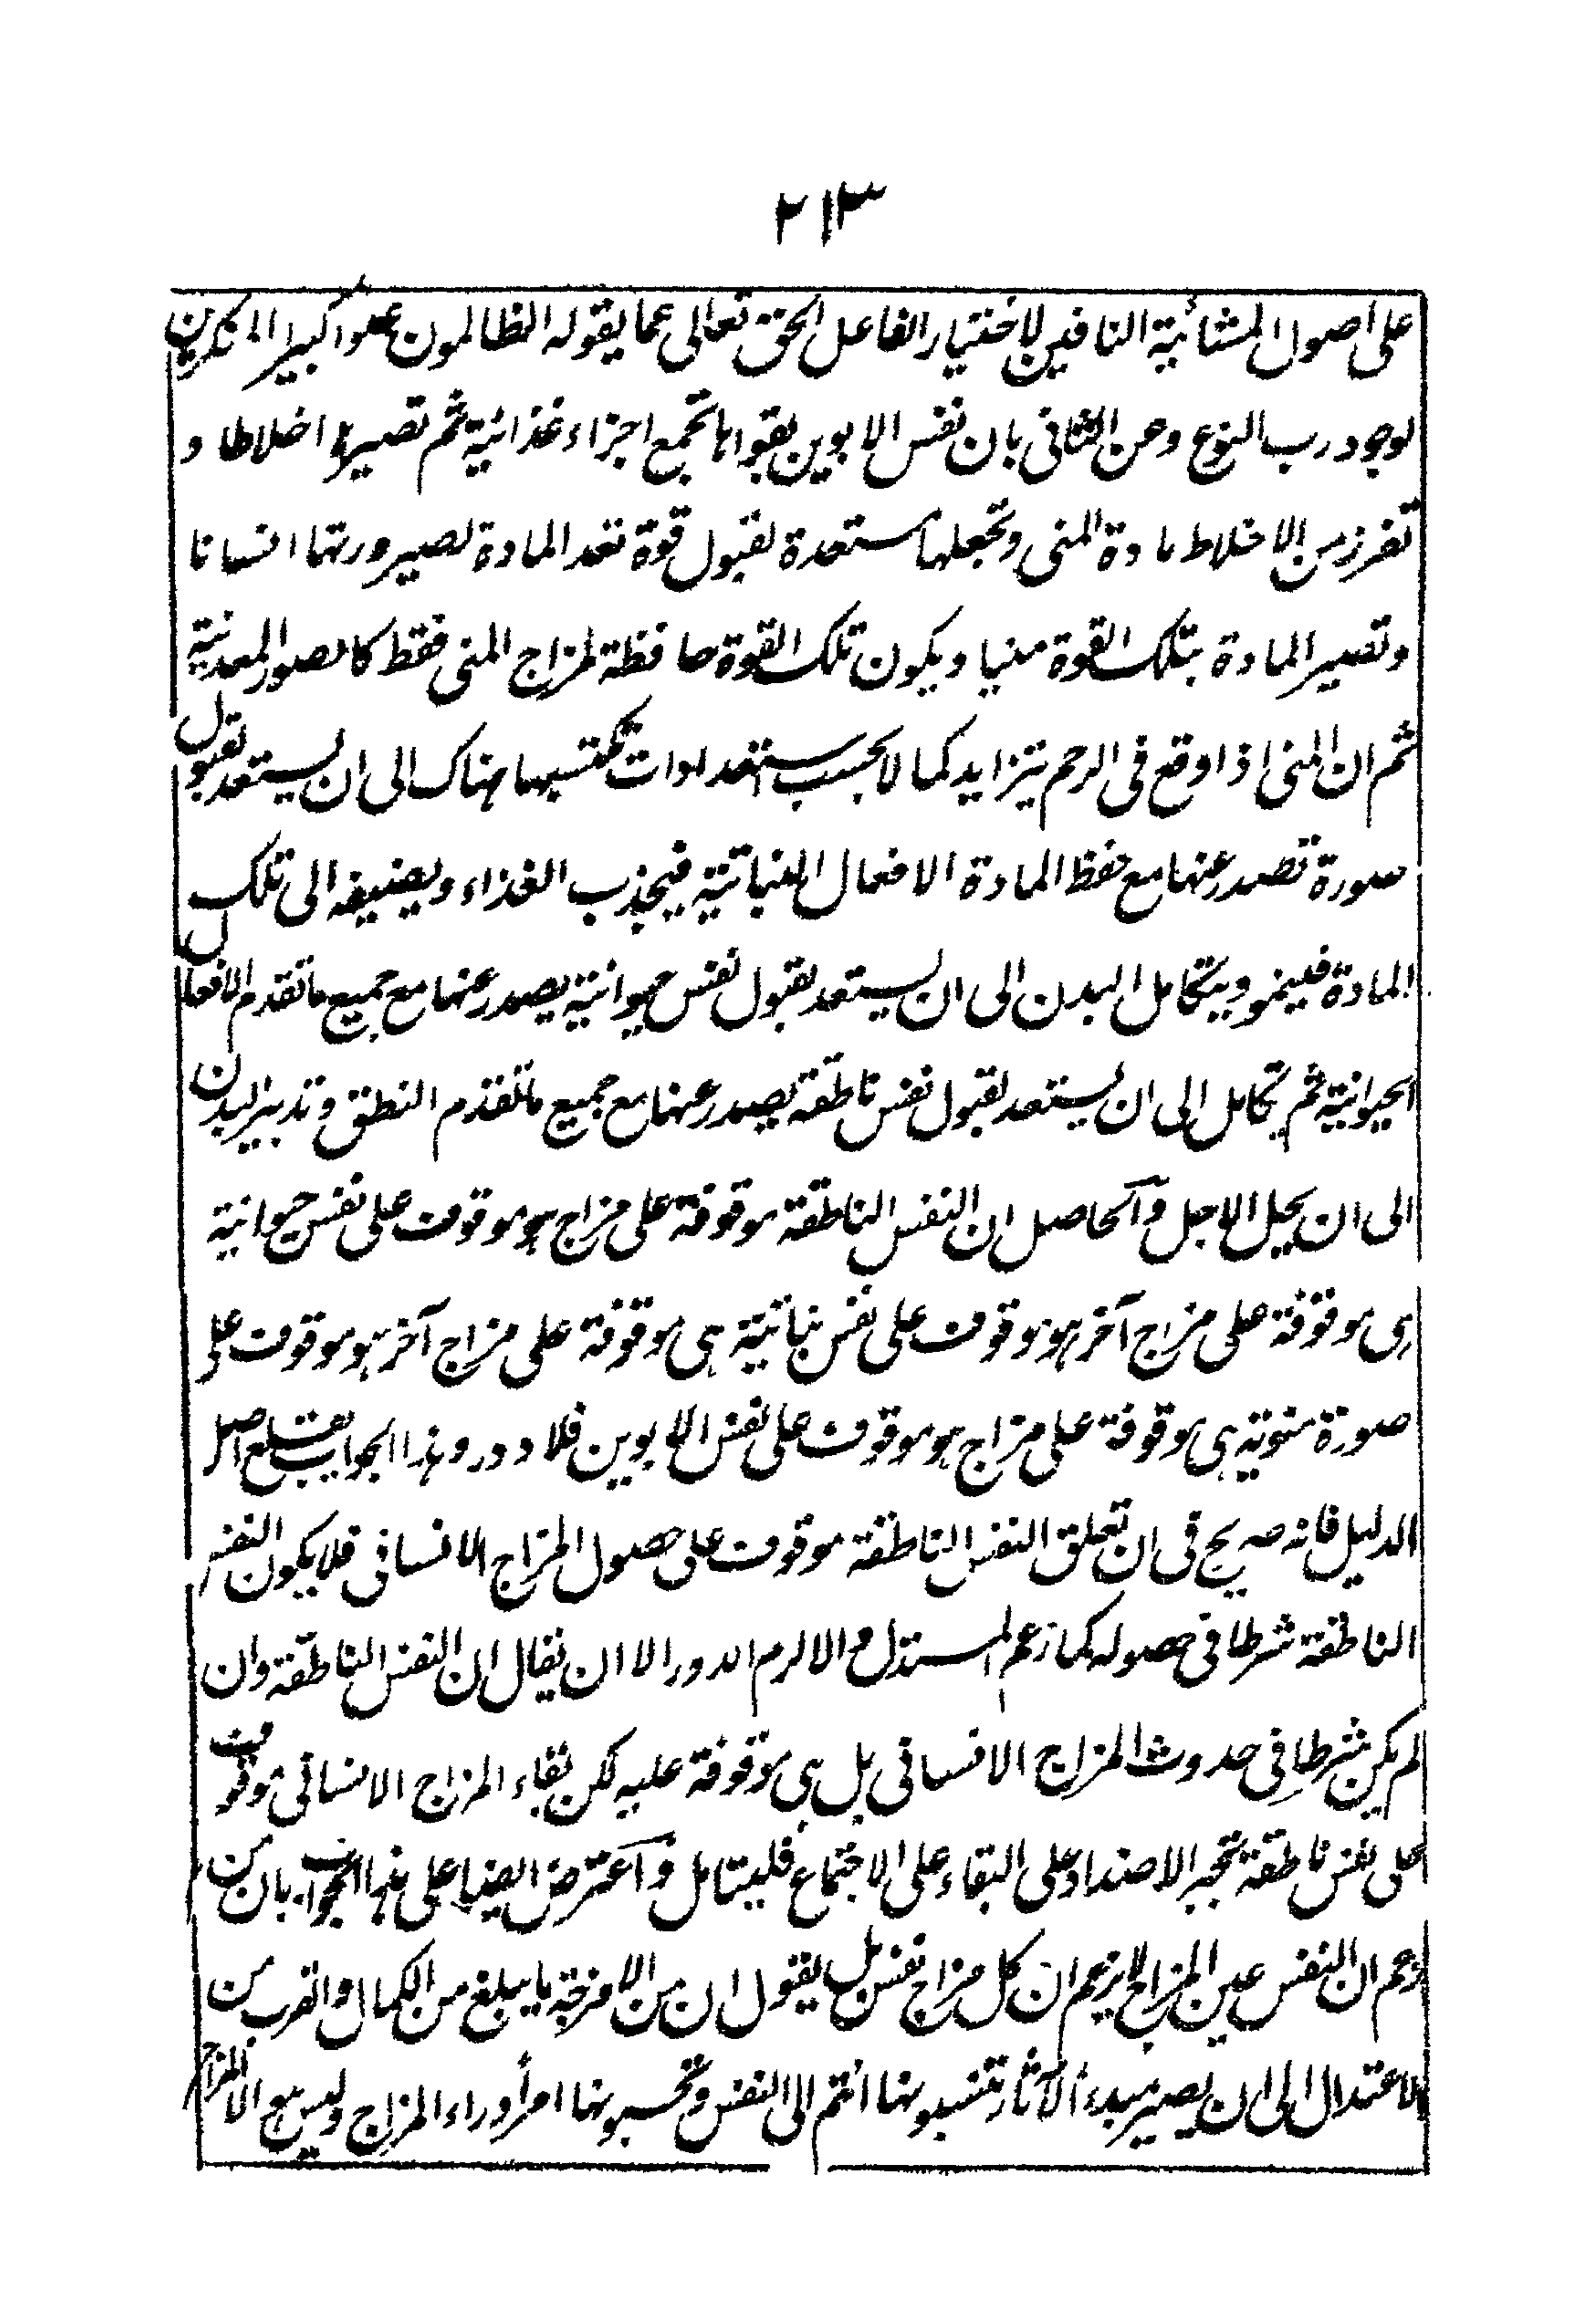 ٢١٣
على اصول المشائية النافين لاختيار الفاعل الحق تعالى عما يقوله الظالمون علوا كبيرا المنكرين
لوجود رب النوع وعن الثانى بان نفس الابوين بقواها تجمع اجزاء غذائية ثم تصيرها اخلاطا و
تفرز من الاخلاط مادة المنى وتجعلها مستعدة لقبول قوة تعد المادة لصيرورتها انسانا
وتصير المادة بتلك القوة منيا ويكون تلك القوة حافظة لمزاج المنى فقط كالصور المعدنية
ثم ان المنى اذا وقع فى الرحم يتزايد كمالا بحسب استعدادات تكتسبها هناك الى ان يستعد لقبول
صورة تصدر عنها مع حفظ المادة الافعال النباتية فيجذب الغذاء ويضيفه الى تلك
المادة فينمو ويتكامل البدن الى ان يستعد لقبول نفس حيوانية يصدر عنها مع جميع ما تقدم الافعال
الحيوانية ثم يتكامل الى ان يستعد لقبول نفس ناطقة يصدر عنها مع جميع ما تقدم النطق وتدبير البدن
الى ان يحل الاجل وآلحاصل ان النفس الناطقة موقوفة على مزاج هو موقوف على نفس حيوانية
هى موقوفة على مزاج آخر هو موقوف على نفس نباتية هى موقوفة على مزاج آخر هو موقوف على
صورة منوية هى موقوفة على مزاج هو موقوف على نفس الابوين فلا دور وهذا الجواب يقلع اصل
الدليل فانه صريح فى ان تعلق النفس الناطقة موقوف على حصول المزاج الانسانى فلا يكون النفس
الناطقة شرطا فى حصوله كما زعم المستدل والا لزم الدور الا ان يقال ان النفس الناطقة وان
لم يكن شرطا فى حدوث المزاج الانسانى بل هى موقوفة عليه لكن بقاء المزاج الانسانى موقوف
على نفس ناطقة تجبر الاضداد على البقاء على الاجتماع فليتامل وآعترض ايضا على هذا الجواب بان من
زعم ان النفس عين المزاج لا يزعم ان كل مزاج نفس بل يقول ان من الامزجة ما يبلغ من الكمال والقرب من
الاعتدال الى ان يصير مبدء الآثار تنسبونها انتم الى النفس وتحسبونها امرأ وراء المزاج وليس مع الا المزاج